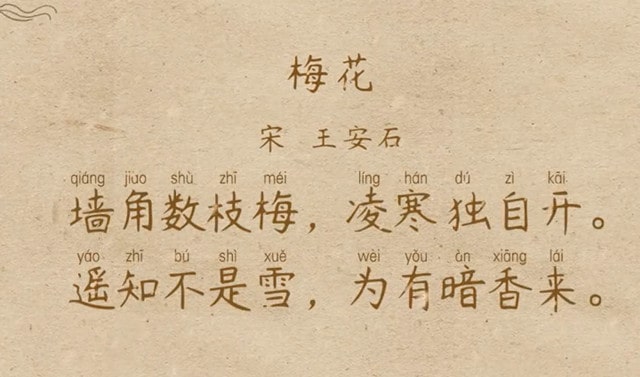 梅花
宋 王安石
qiáng jiǎo shù zhī méi líng hán dú zì kāi
墙角数枝梅，凌寒独自开。
yáo zhī bú shì xuě wèi yǒu àn xiāng lái
遥知不是雪，为有暗香来。